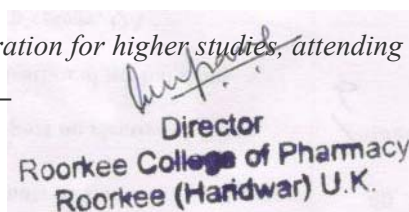 ration for higher studies, attending
Director
Roorkee College of Pharmacy
Roorkee (Haridwar) U.K.